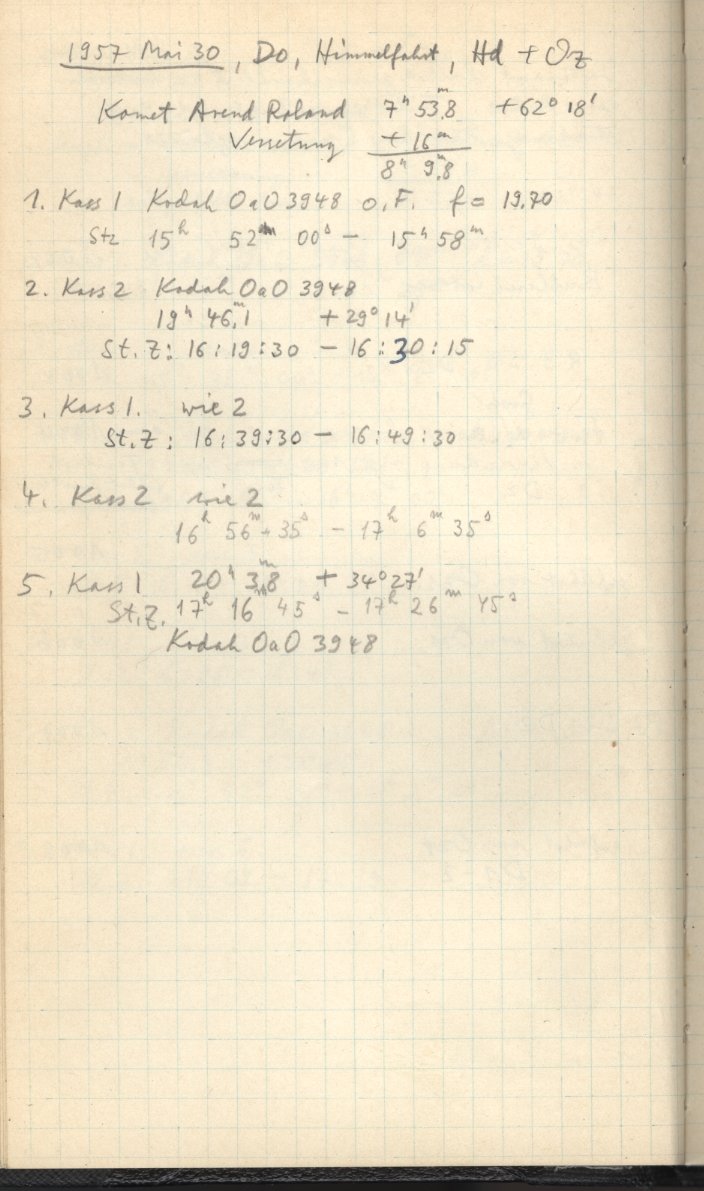 1957 Mai 30, Do, Himmelfahrt, Hd + Oz
Komet Arend Roland 7ʰ 53ᵐ,8 +62° 18'
Versetzung + 16ᵐ
8ʰ 9ᵐ,8
1. Kass 1 Kodak OaO 3948 o.F. f = 19.70
Stz 15ʰ 52ᵐ 00ˢ – 15ʰ 58ᵐ
2. Kass 2 Kodak OaO 3948
19ʰ 46ᵐ,1 +29° 14'
St.Z: 16:19:30 – 16:30:15
3. Kass 1. wie 2
St.Z: 16:39:30 – 16:49:30
4. Kass 2 wie 2
16ʰ 56ᵐ 35ˢ – 17ʰ 6ᵐ 35ˢ
5. Kass 1 20ʰ 3ᵐ,8 + 34° 27'
St.Z. 17ʰ 16ᵐ 45ˢ – 17ʰ 26ᵐ 45ˢ
Kodak OaO 3948